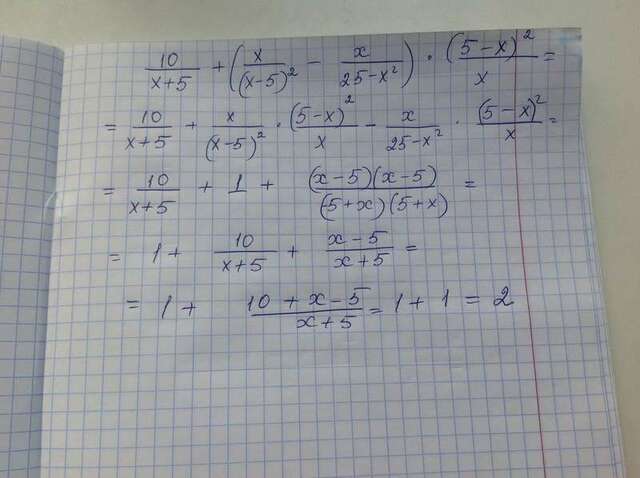 10/(x+5) + (x/(x-5)² - x/(25-x²)) · (5-x)²/x =
= 10/(x+5) + x/(x-5)² · (5-x)²/x - x/(25-x²) · (5-x)²/x =
= 10/(x+5) + 1 + (x-5)(x-5)/(5+x)(5+x) =
= 1 + 10/(x+5) + (x-5)/(x+5) =
= 1 + (10+x-5)/(x+5) = 1 + 1 = 2